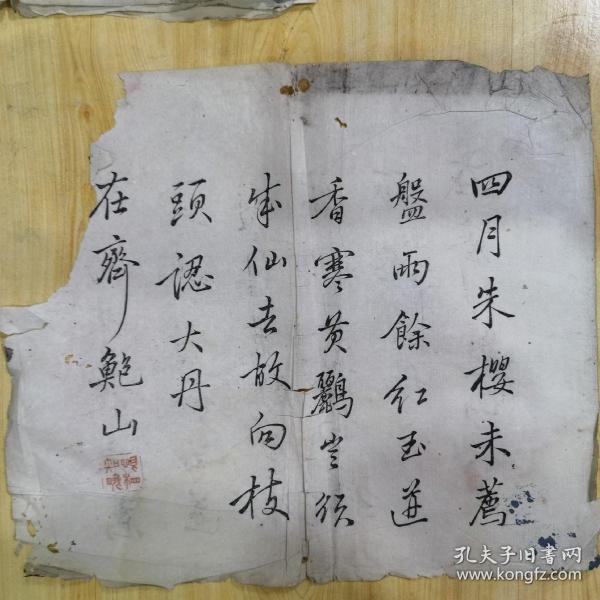 四月朱櫻未薦
盤雨餘紅玉迸
香寒黄鸝豈須
成仙去故向枝
頭認大丹
在齊鮑山
孔夫子旧书网
www.kongfz.com